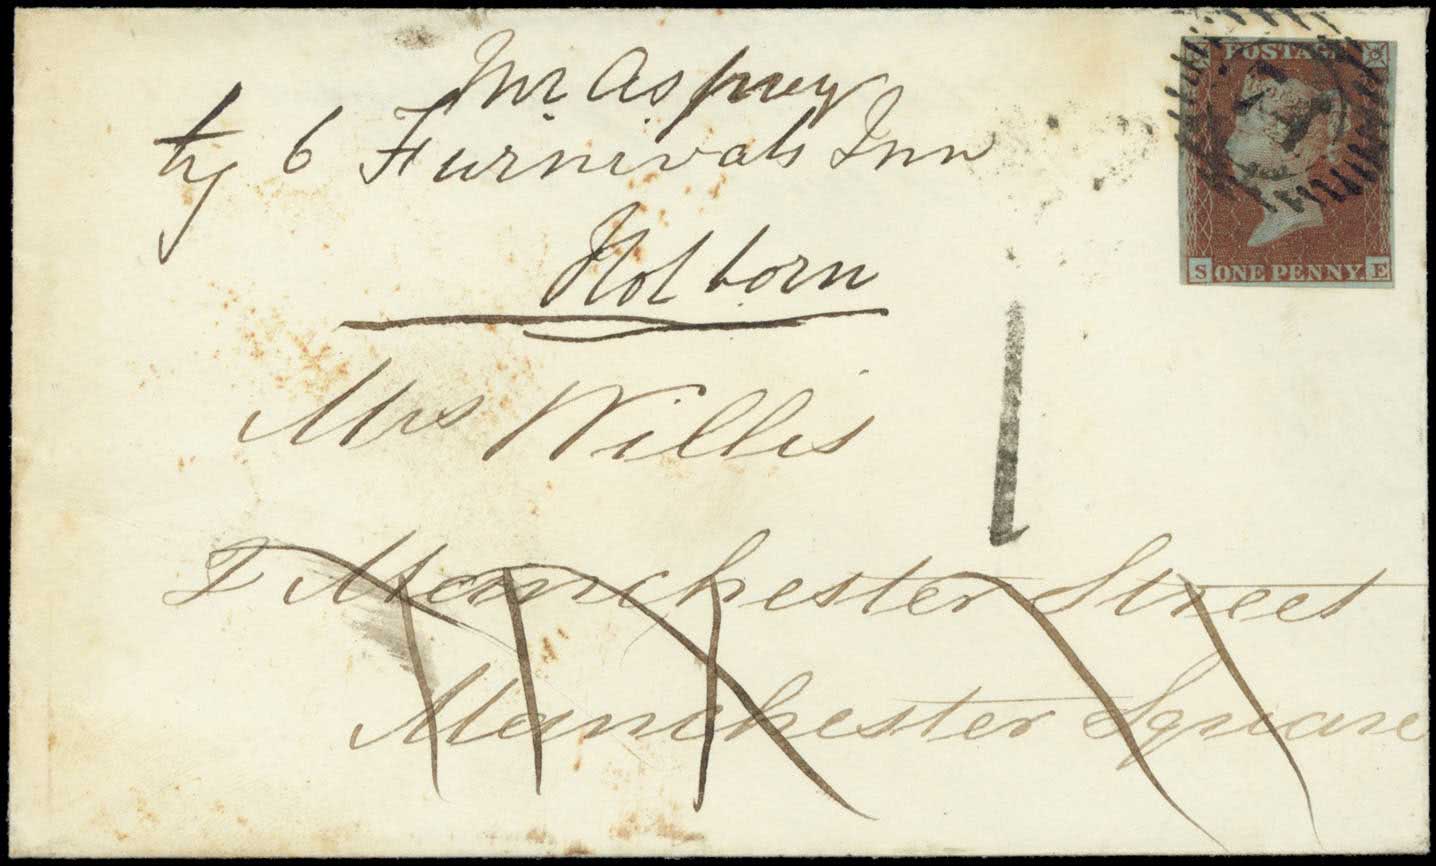 Mr Asprey
try 6 Furnivals Inn
Holborn
Mrs Willis
7 Manchester Street
Manchester Square
POSTAGE
S ONE PENNY. E
1